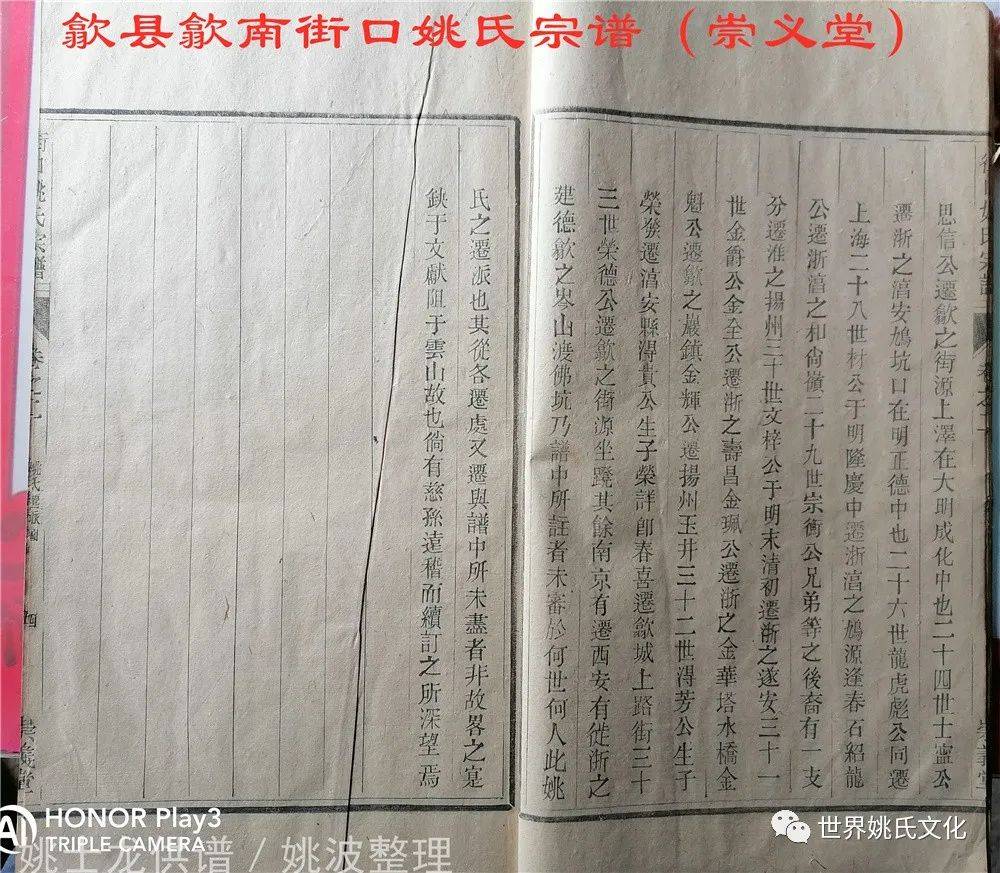 歙县歙南街口姚氏宗谱（崇义堂）
思信公遷歙之街源上澤在大明成化中也二十四世士寧公
遷浙之湻安鳩坑口在明正德中也二十六世龍虎彪公同遷
上海二十八世材公于明隆慶中遷浙湻之鳩源逢春石紹龍
公遷浙湻之和尚嶺二十九世宗衡公兄弟等之後裔有一支
分遷淮之揚州三十世文梓公于明末清初遷浙之遂安三十一
世金爵公金全公遷浙之壽昌金珮公遷浙之金華塔水橋金
魁公遷歙之巖鎮金輝公遷揚州玉井三十二世淂芳公生子
榮發遷湻安縣淂貴公生子榮詳卽春喜遷歙城上路街三十
三世榮德公遷歙之街源坐蹺其餘南京有遷西安有徙浙之
建德歙之岑山渡佛坑乃譜中所註者未審於何世何人此姚
氏之遷派也其從各遷處又遷與譜中所未盡者非故畧之寔
鈌于文獻阻于雲山故也倘有慈孫遠稽而續訂之所深望焉
街口姚氏宗譜
卷之一
姚氏遷派圖
四
崇義堂
HONOR Play3
TRIPLE CAMERA
AI
姚土龙供谱 / 姚波整理
世界姚氏文化